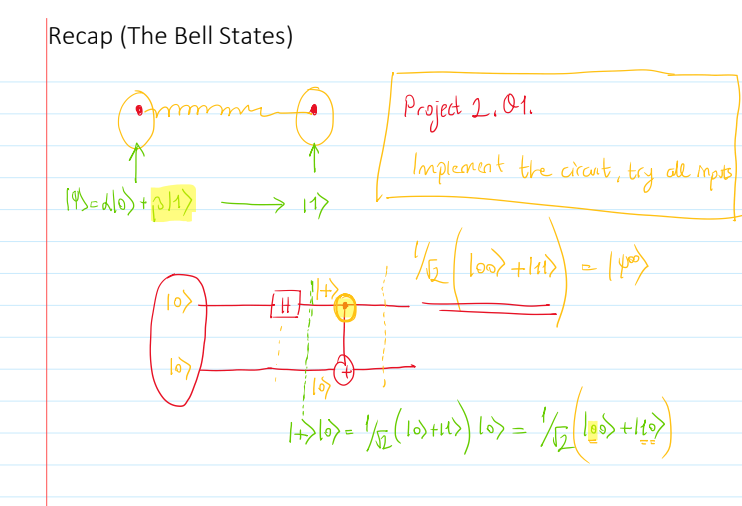 Recap (The Bell States)
Project 2, Q1.
Implement the circuit, try all inputs
|Ψ⟩=α|0⟩+β|1⟩ → |1⟩
1/√2 (|00⟩+|11⟩) = |ψ⁰⁰⟩
|0⟩ H |+⟩
|0⟩ |0⟩
|+⟩|0⟩ = 1/√2 (|0⟩+|1⟩) |0⟩ = 1/√2 (|00⟩+|10⟩)